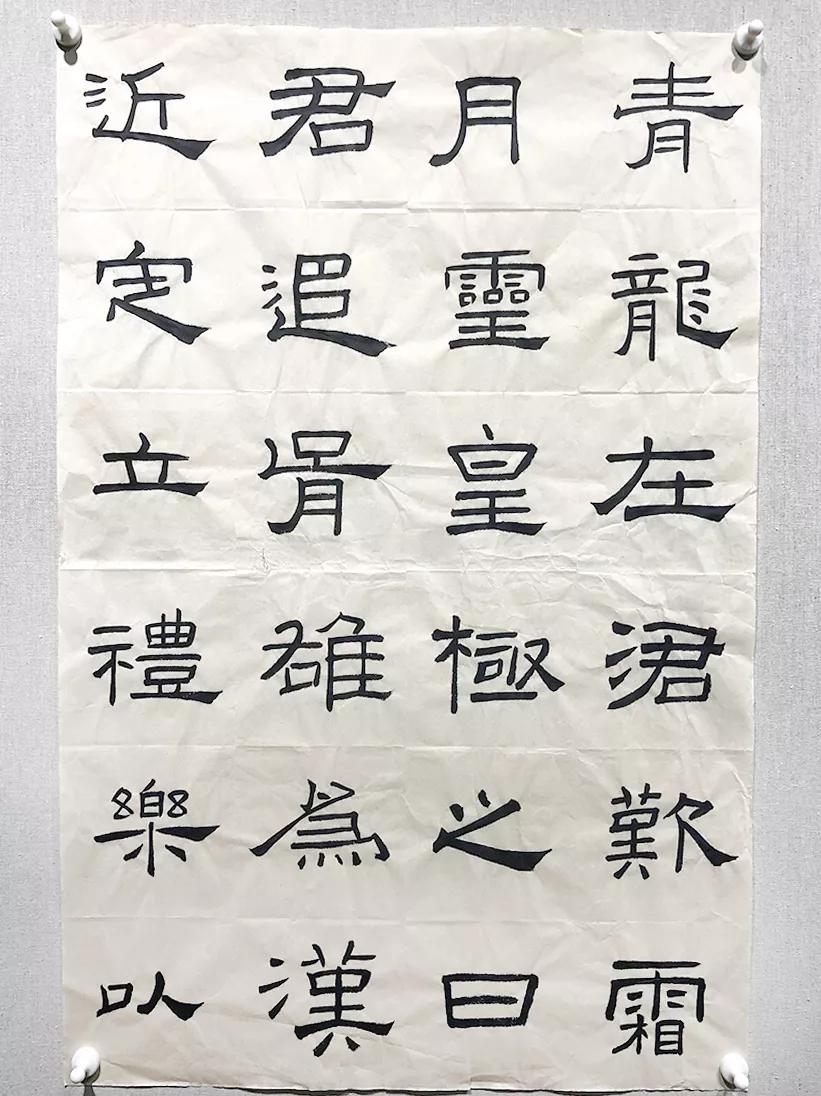 青龍在涒歎霜
月靈皇極之日
君追胥雄為漢
近定立禮樂以